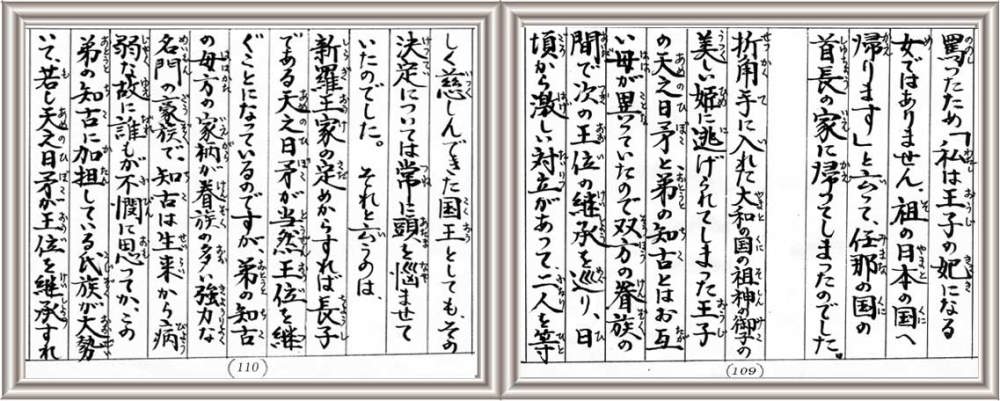 罵ったため「私は王子の妃になる
女ではありません、祖の日本の国へ
帰ります」と云って、任那の国の
首長の家に帰ってしまったのでした。
折角手に入れた大和の国の祖神の御子の
美しい姫に逃げられてしまった王子
の天之日矛と弟の知古とはお互
い母が異っていたので双方の眷族の
間で次の王位の継承を巡り、日
頃から激しい対立があって、二人を等
(109)
しく慈しんできた国王としても、その
決定については常に頭を悩ませて
いたのでした。それと云うのは、
新羅王家の定めからすれば長子
である天之日矛が当然王位を継
ぐことになっているのですが、弟の知古
の母方の家柄が眷族の多い強力な
名門の豪族で、知古は生来から病
弱な故に誰もが不憫に思ってか、この
弟の知古に加担している氏族が大勢
いて、若し天之日矛が王位を継承すれ
(110)